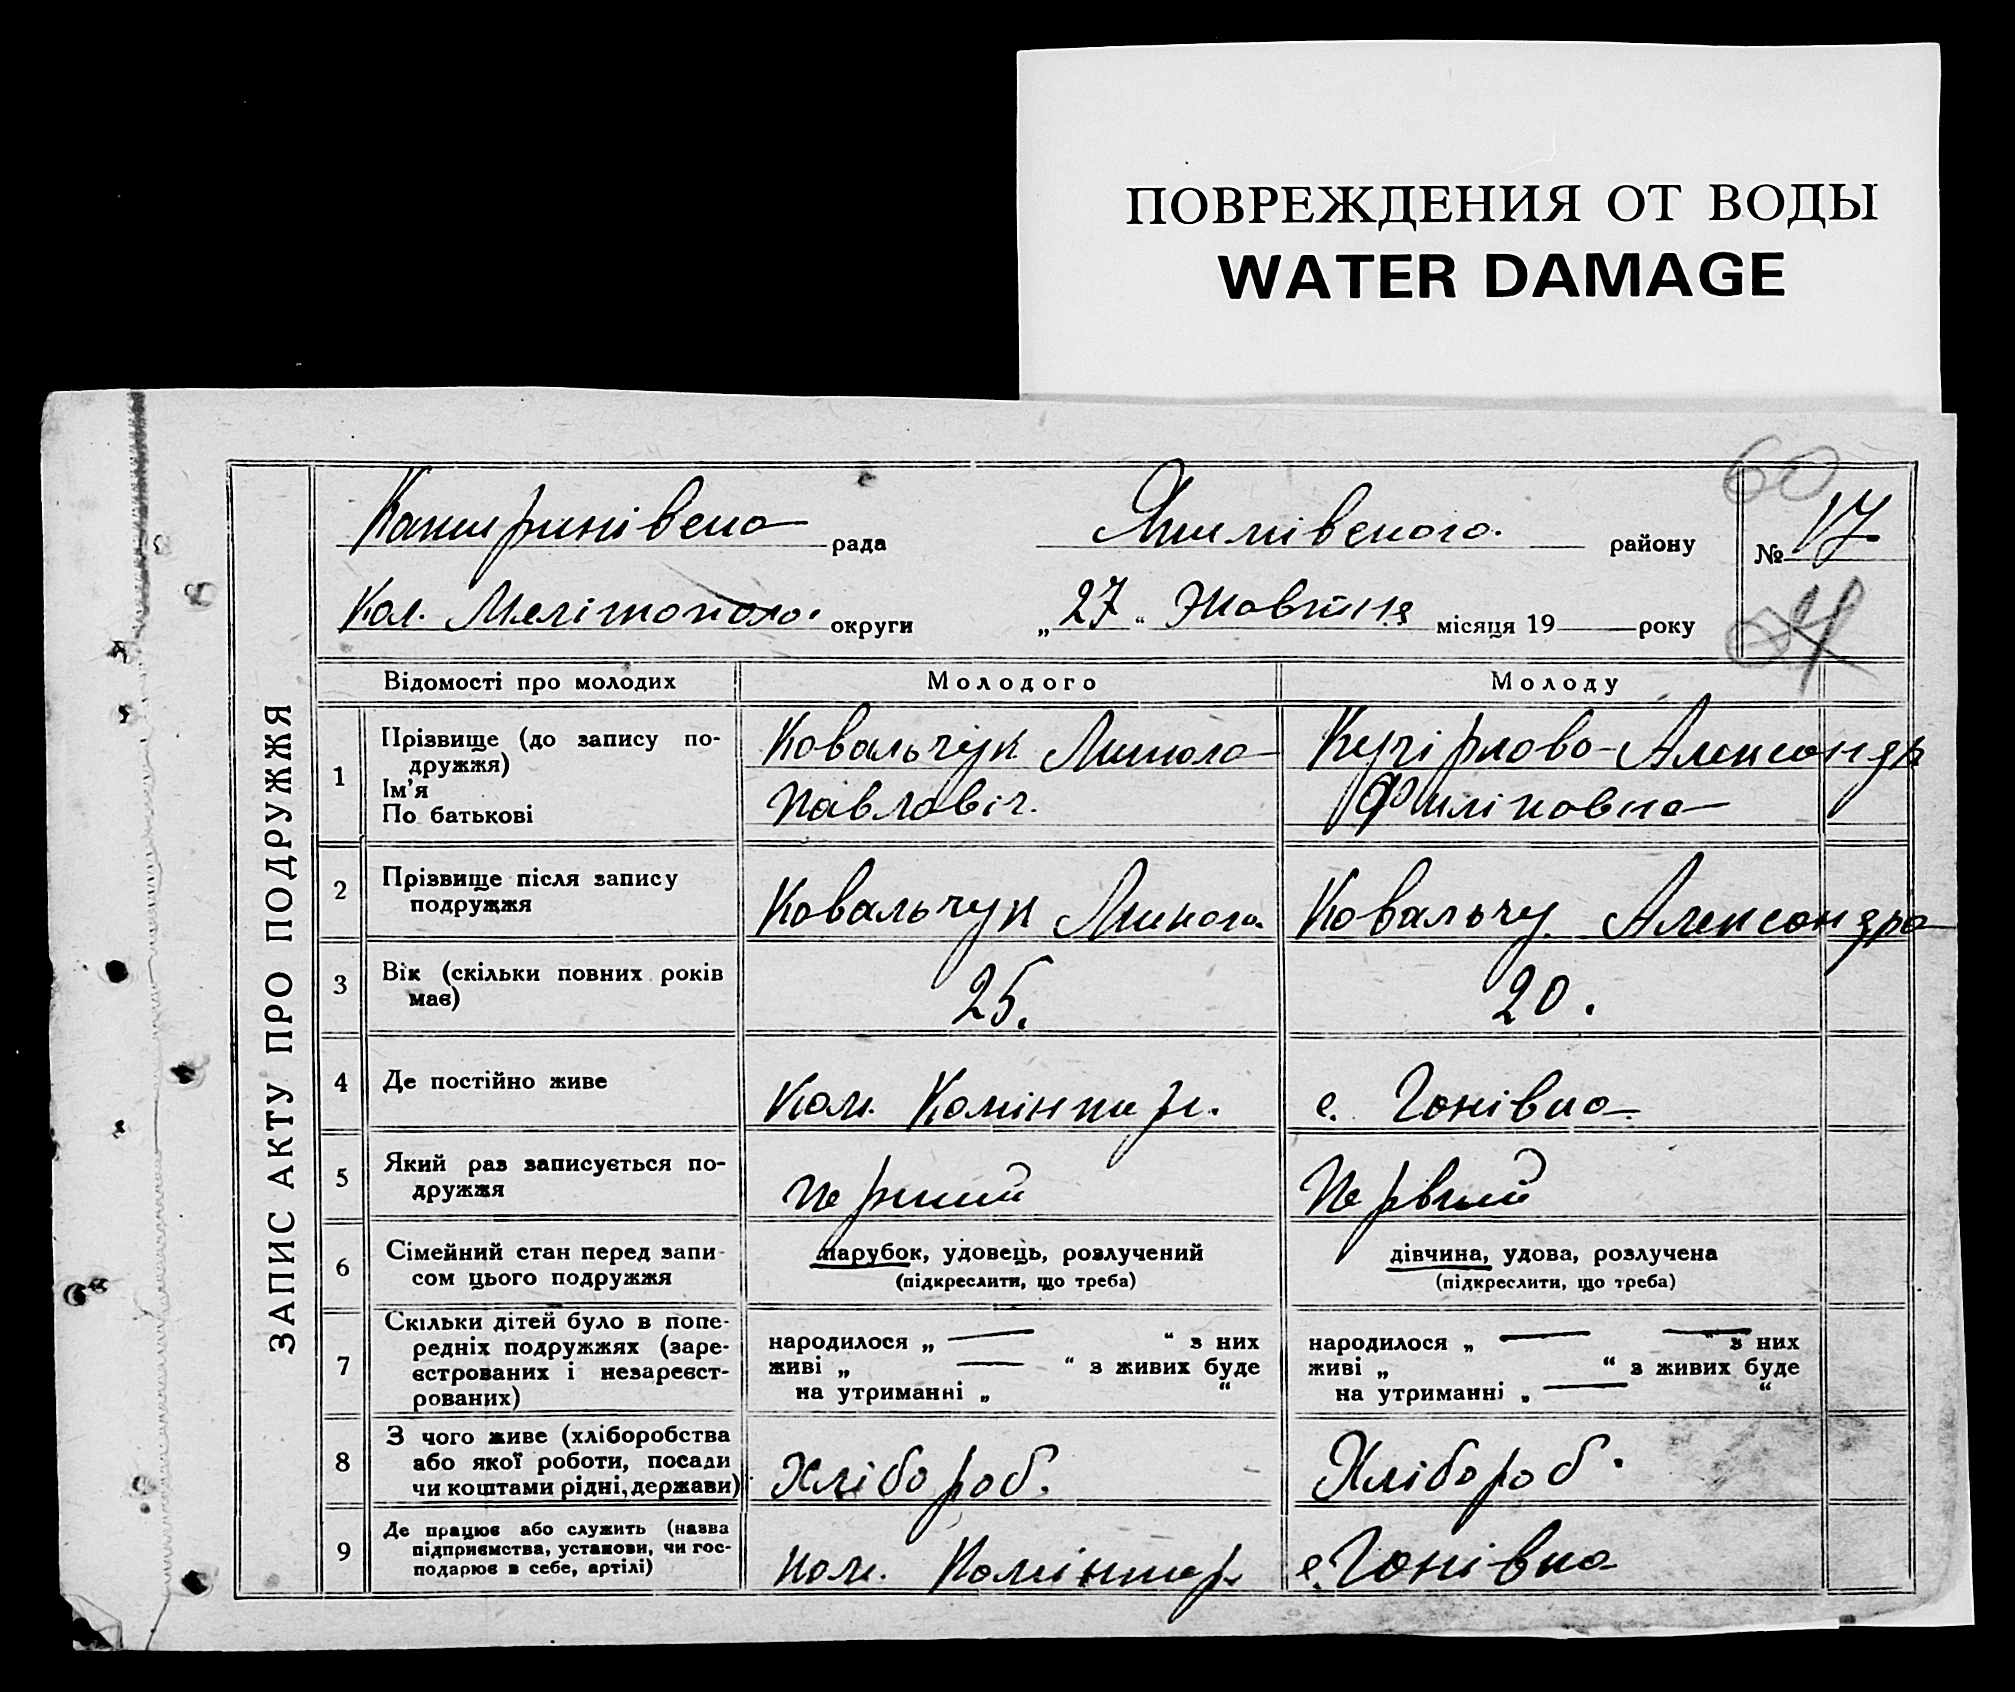 ПОВРЕЖДЕНИЯ ОТ ВОДЫ
WATER DAMAGE
60
рада
району
№ 17
округи
„27“ Жовтня місяця 19 року
24
ЗАПИС АКТУ ПРО ПОДРУЖЖЯ
Відомості про молодих
Молодого
Молоду
1
Прізвище (до запису по-
дружжя)
Ім'я
По батькові
Ковальчук Микола
Павловіч.
Александр
Філіповна
2
Прізвище після запису
подружжя
Ковальчук Микола
Ковальчу Александра
3
Вік (скільки повних років
має)
25.
20.
4
Де постійно живе
Ком. Комінтерн.
с. Ганівка
5
Який раз записується по-
дружжя
Перший
Первий
6
Сімейний стан перед запи-
сом цього подружжя
парубок, удовець, розлучений
(підкреслити, що треба)
дівчина, удова, розлучена
(підкреслити, що треба)
7
Скільки дітей було в попе-
редніх подружжях (заре-
єстрованих і незареєст-
рованих)
народилося „ — “ з них
живі „ — “ з живих буде
на утриманні „ “
народилося „ — — “ з них
живі „ “ з живих буде
на утриманні „ — “
8
З чого живе (хліборобства
або якої роботи, посади
чи коштами рідні, держави)
Хлібороб.
Хлібороб.
9
Де працює або служить (назва
підприємства, установи, чи гос-
подарює в себе, артілі)
Ком. Комінтерн
с. Ганівка